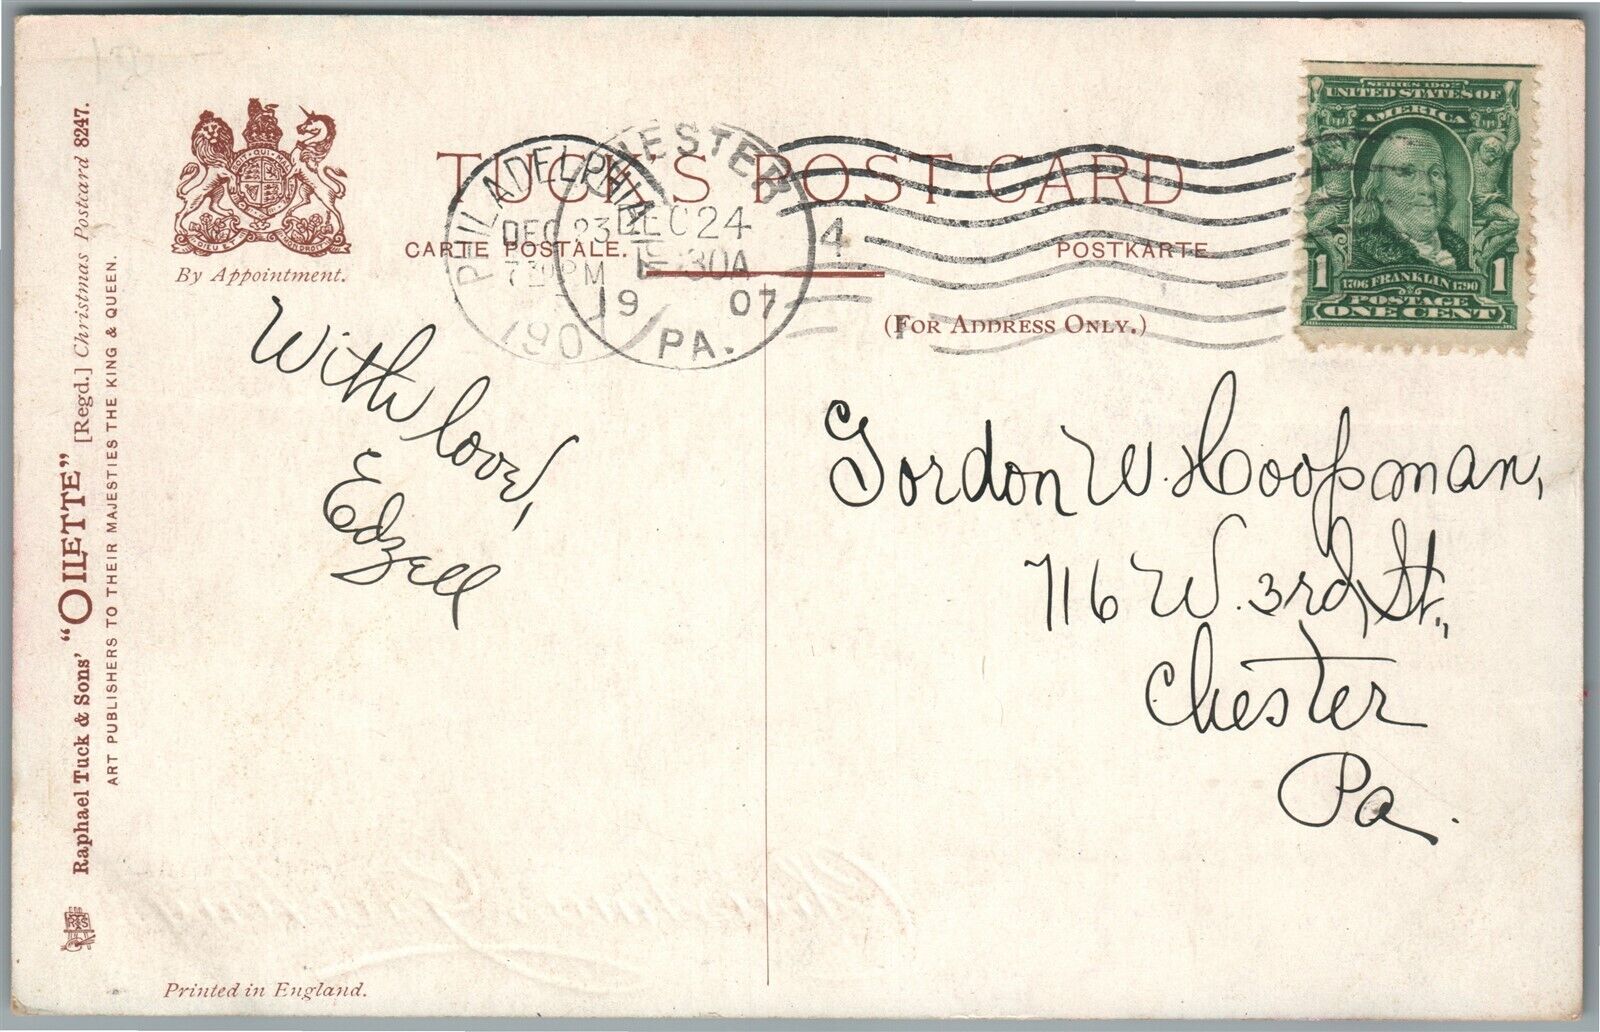 Raphael Tuck & Sons' "OILETTE" [Regd.] Christmas Postcard 8247.
ART PUBLISHERS TO THEIR MAJESTIES THE KING & QUEEN.
By Appointment.
TUCK'S POST CARD
CARTE POSTALE.
POSTKARTE.
(FOR ADDRESS ONLY.)
PHILADELPHIA
DEC 23
7 30 PM
190
CHESTER
DEC 24
30A
19 07
PA.
4
SERIES 1902
UNITED STATES OF
AMERICA
1706 FRANKLIN 1790
POSTAGE
1 ONE CENT 1
With love,
Edzell
Gordon W. Hoopman,
716 W. 3rd St.,
Chester
Pa.
RTS
Printed in England.